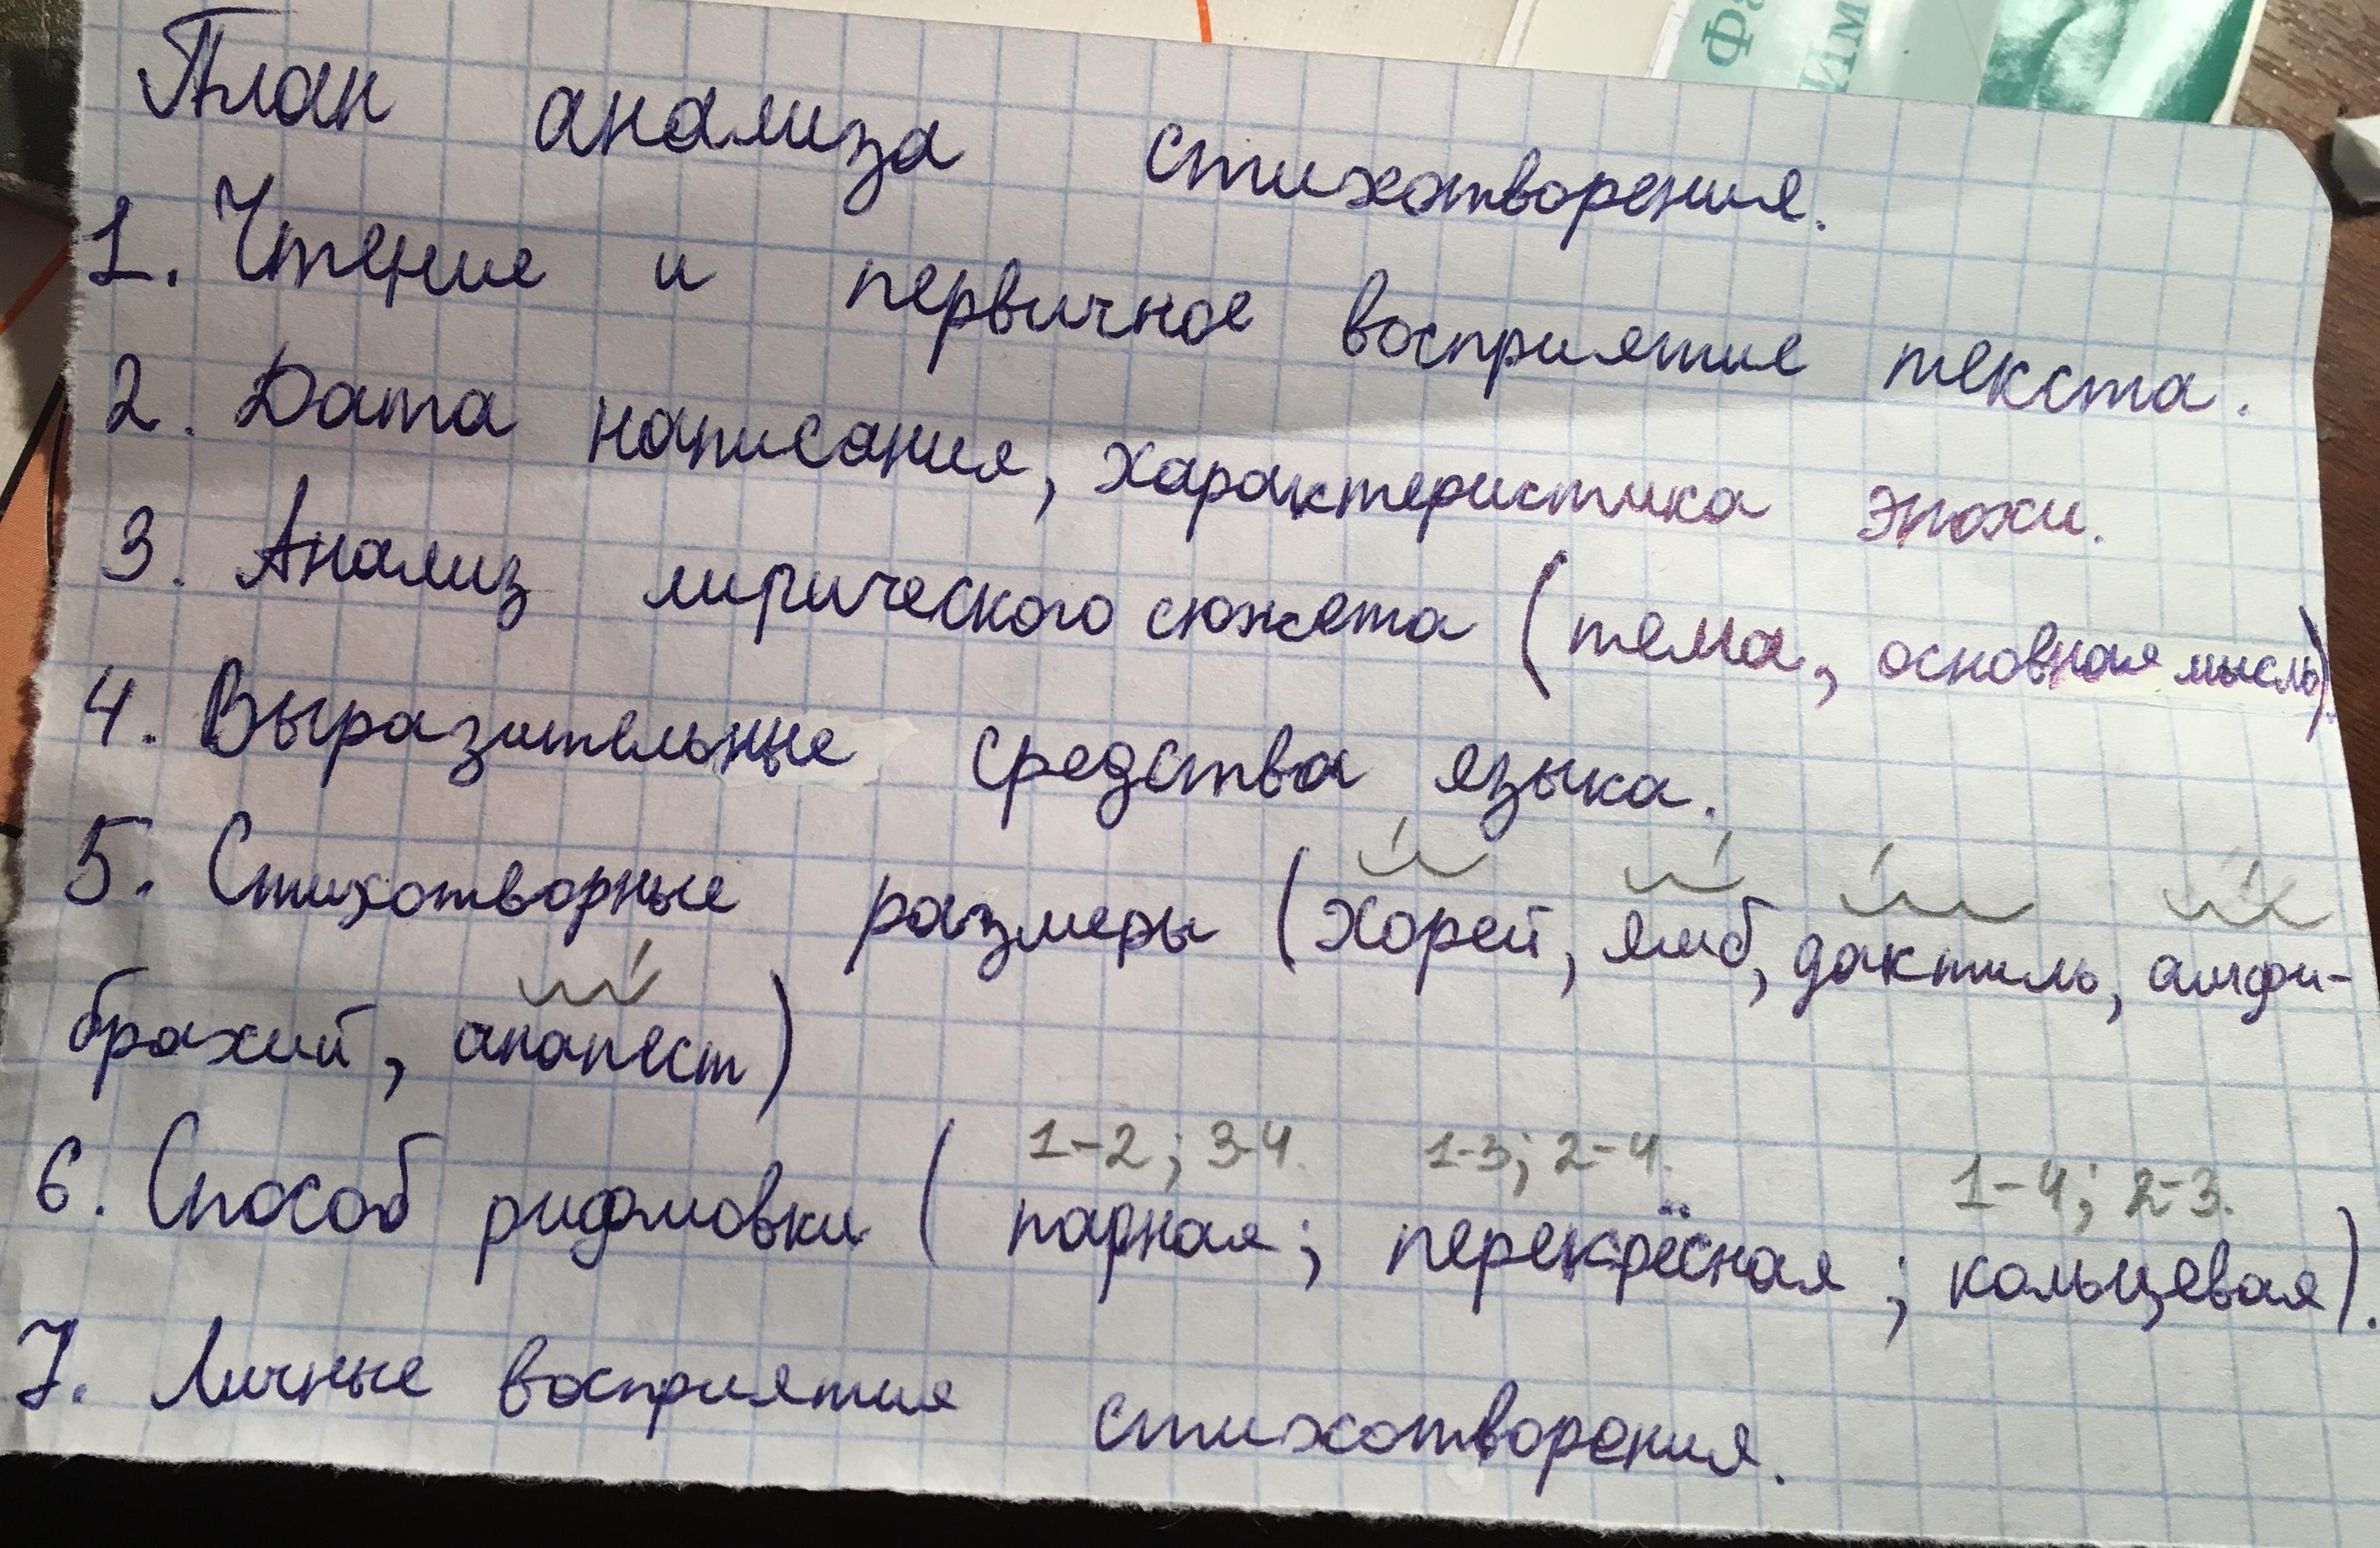 План анализа стихотворения.
1. Чтение и первичное восприятие текста.
2. Дата написания, характеристика эпохи.
3. Анализ лирического сюжета (тема, основная мысль).
4. Выразительные средства языка.
5. Стихотворные размеры (хорей, ямб, дактиль, амфи-
брахий, анапест)
1-2; 3-4. 1-3; 2-4. 1-4; 2-3.
6. Способ рифмовки (парная; перекрёсная; кольцевая).
7. Личные восприятия стихотворения.